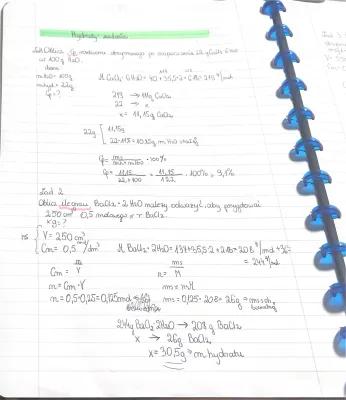 Hydraty - zadania
Zad. Oblicz Cp roztworu otrzymanego po rozpuszczeniu 22g CaCl2·6H2O
w 100g H2O.
dane
mH2O = 100g
mhydr = 22g
Cp = ?
M CaCl2·6H2O = 40+35,5·2+6·18= 219 g/mol
219 → 111g CaCl2
22 → x
x = 11,15g CaCl2
22g
11,15g
22-11,15 = 10,85g m H2O
Cp = ms · 100%
Cp = 11,15 / 22+100 = 11,15 / 122 · 100% = 9,1%
Zad 2.
Oblicz ile gramów BaCl2·2H2O należy odważyć, aby przygotować
250 cm³ 0,5 molowego r-r BaCl2.
xg = ?
V = 250 cm³
Cm = 0,5 mol/dm³
M BaCl2·2H2O = 137+35,5·2+2·18 = 208 g/mol + 36 =
= 244 g/mol
Cm = n / V
n = ms / M
n = Cm·V
ms = n·M
n = 0,5·0,25 = 0,125mol
ms = 0,125·208 = 26g
244g BaCl2·2H2O → 208 g BaCl2
x → 26g BaCl2
x = 30,5g → m hydratu